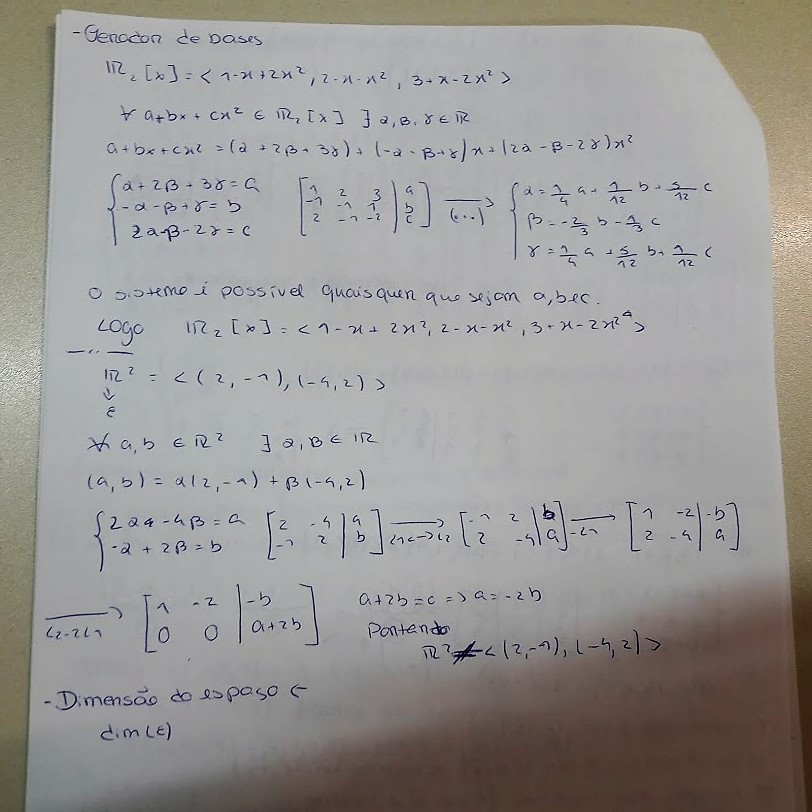 - Gerador de bases
ℝ₂[x] = < 1-x+2x², 2-x-x², 3+x-2x² >
∀ a+bx+cx² ∈ ℝ₂[x] ∃ α, β, γ ∈ ℝ
a+bx+cx² = (α + 2β + 3γ) + (-α - β + γ)x + (2α - β - 2γ)x²
{ α + 2β + 3γ = a
-α - β + γ = b
2α - β - 2γ = c
[ 1 2 3 | a
-1 -1 1 | b
2 -1 -2 | c ] → (...)
{ α = 1/4 a + 1/12 b + 5/12 c
β = -2/3 b - 1/3 c
γ = 1/4 a + 5/12 b + 1/12 c
O sistema é possível quaisquer que sejam a, b e c.
Logo ℝ₂[x] = < 1-x+2x², 2-x-x², 3+x-2x² >
ℝ² = < (2, -1), (-4, 2) >
↓
E
∀ a, b ∈ ℝ² ∃ α, β ∈ ℝ
(a, b) = α(2, -1) + β(-4, 2)
{ 2α - 4β = a
-α + 2β = b
[ 2 -4 | a
-1 2 | b ] → L1 <-> L2 [ -1 2 | b
2 -4 | a ] → -L1 [ 1 -2 | -b
2 -4 | a ]
→ L2-2L1 [ 1 -2 | -b
0 0 | a+2b ]
a+2b = c => a = -2b
Portanto
ℝ² ≠ < (2, -1), (-4, 2) >
- Dimensão do espaço E
dim(E)